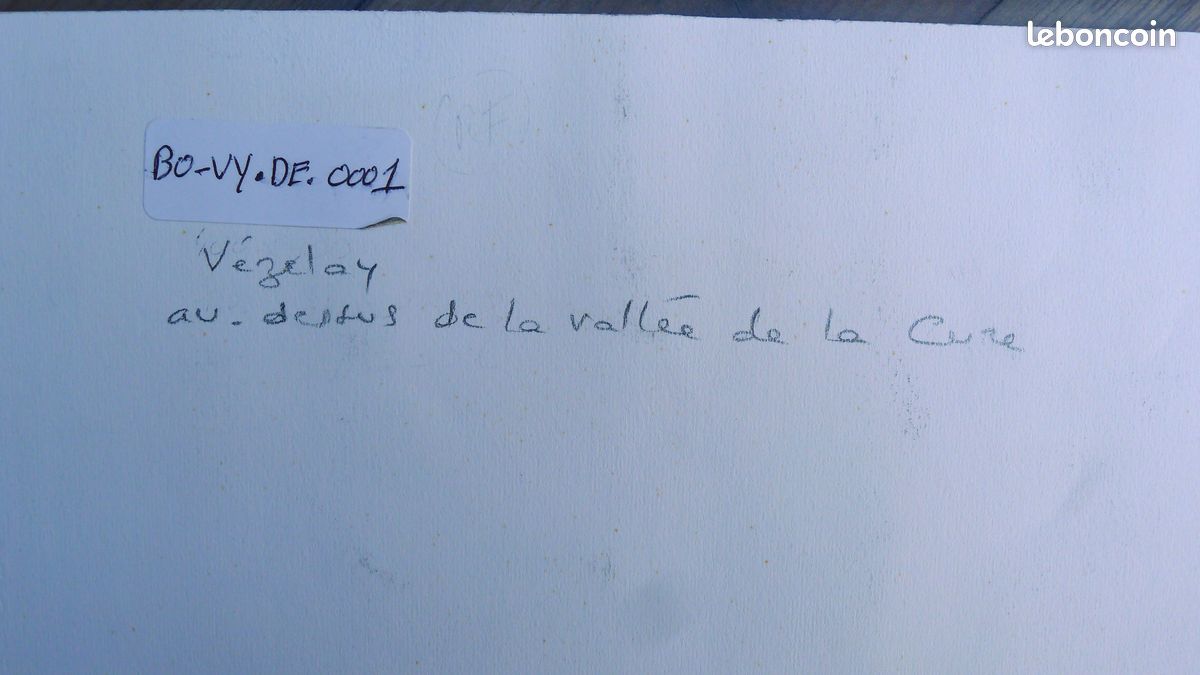 leboncoin
BO-VY.DE.0001
Vézelay
au-dessus de la vallée de la Cure